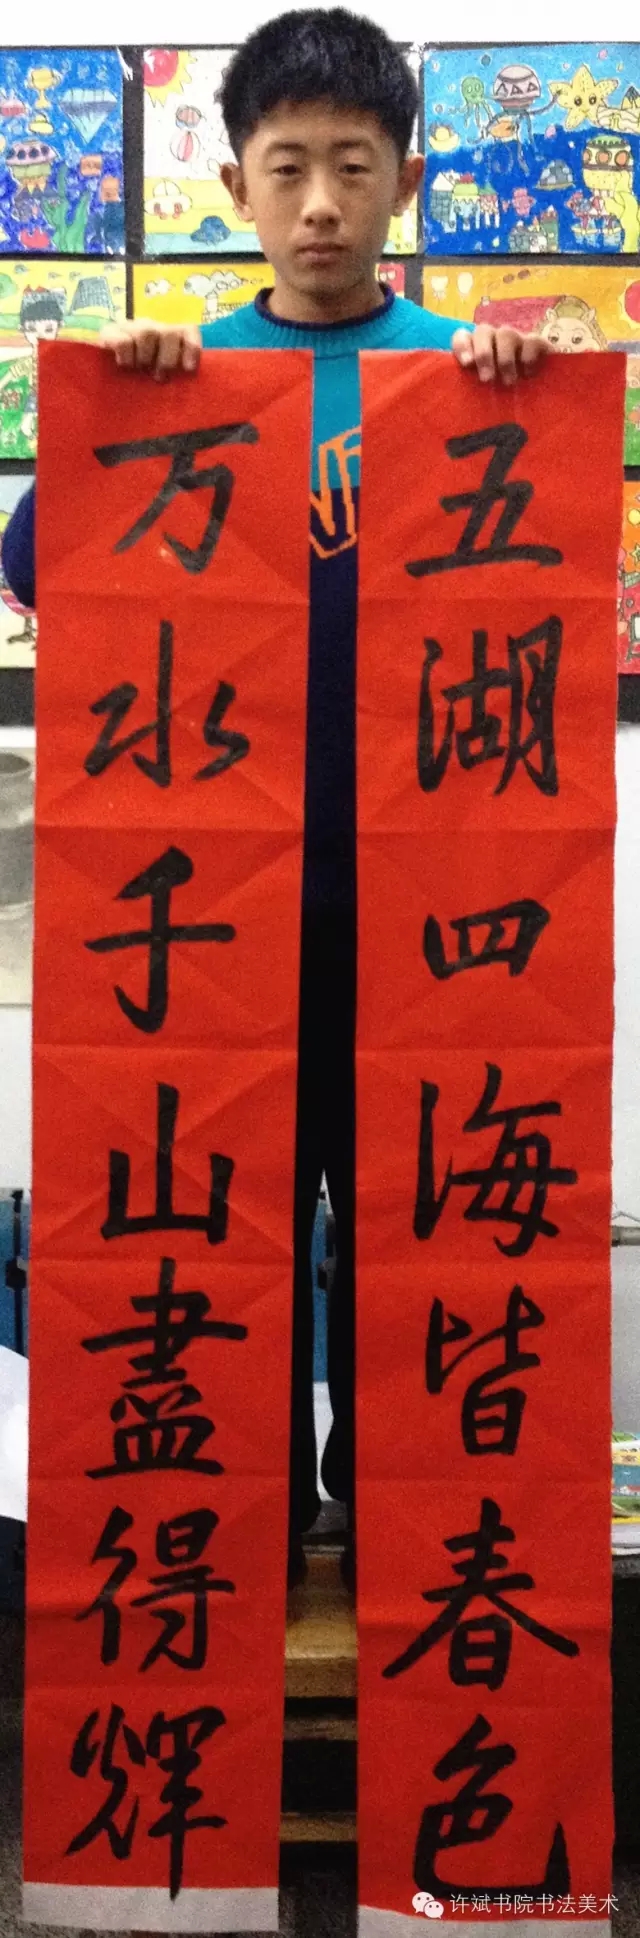 五湖四海皆春色
万水千山盡得輝
许斌书院书法美术